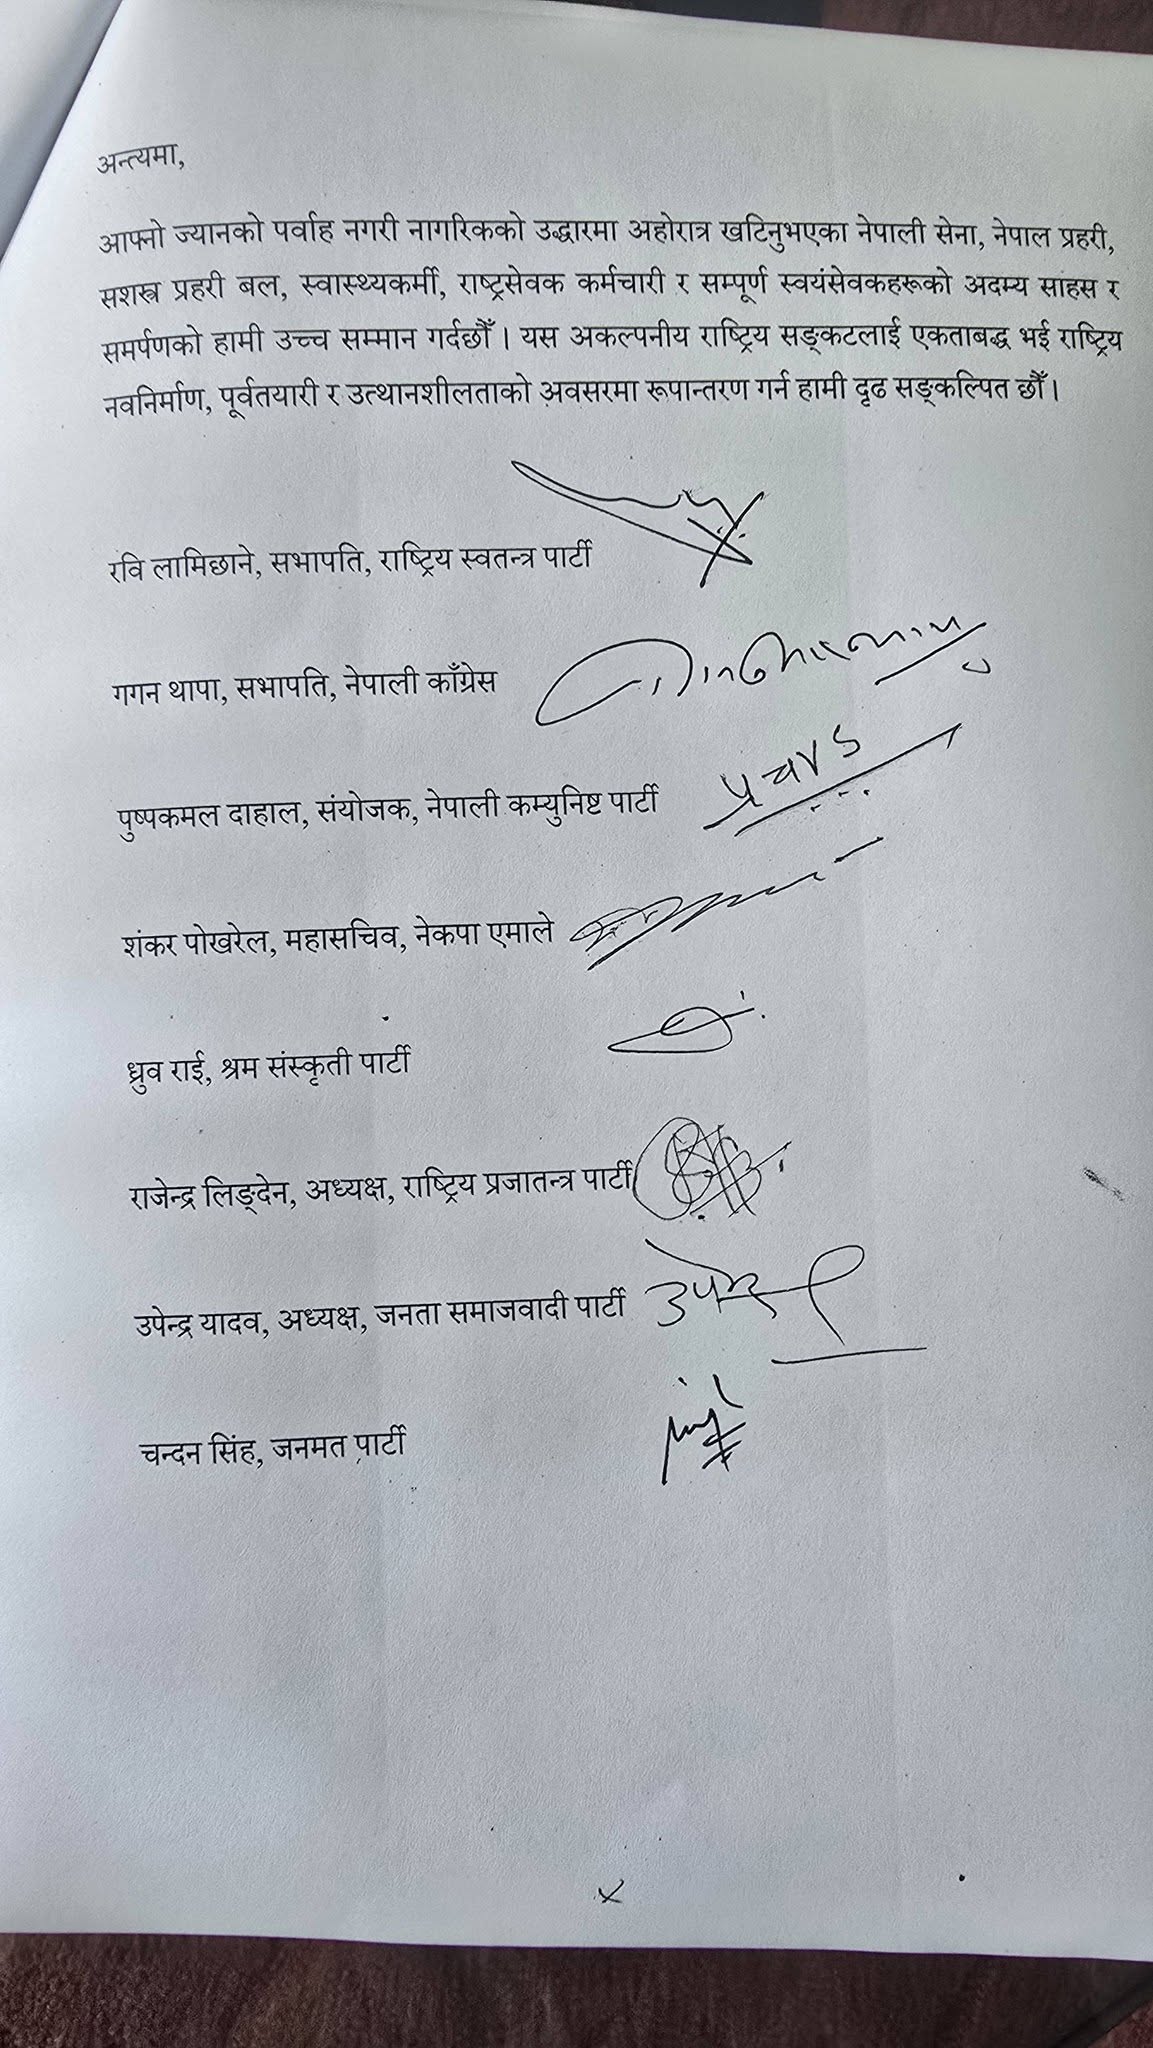 अन्त्यमा,
आफ्नो ज्यानको पर्वाह नगरी नागरिकको उद्धारमा अहोरात्र खटिनुभएका नेपाली सेना, नेपाल प्रहरी,
सशस्त्र प्रहरी बल, स्वास्थ्यकर्मी, राष्ट्रसेवक कर्मचारी र सम्पूर्ण स्वयंसेवकहरूको अदम्य साहस र
समर्पणको हामी उच्च सम्मान गर्दछौँ । यस अकल्पनीय राष्ट्रिय सङ्कटलाई एकताबद्ध भई राष्ट्रिय
नवनिर्माण, पूर्वतयारी र उत्थानशीलताको अवसरमा रूपान्तरण गर्न हामी दृढ सङ्कल्पित छौँ ।
रवि लामिछाने, सभापति, राष्ट्रिय स्वतन्त्र पार्टी
गगन थापा, सभापति, नेपाली काँग्रेस
पुष्पकमल दाहाल, संयोजक, नेपाली कम्युनिष्ट पार्टी
शंकर पोखरेल, महासचिव, नेकपा एमाले
ध्रुव राई, श्रम संस्कृती पार्टी
राजेन्द्र लिङ्देन, अध्यक्ष, राष्ट्रिय प्रजातन्त्र पार्टी
उपेन्द्र यादव, अध्यक्ष, जनता समाजवादी पार्टी
चन्दन सिंह, जनमत पार्टी